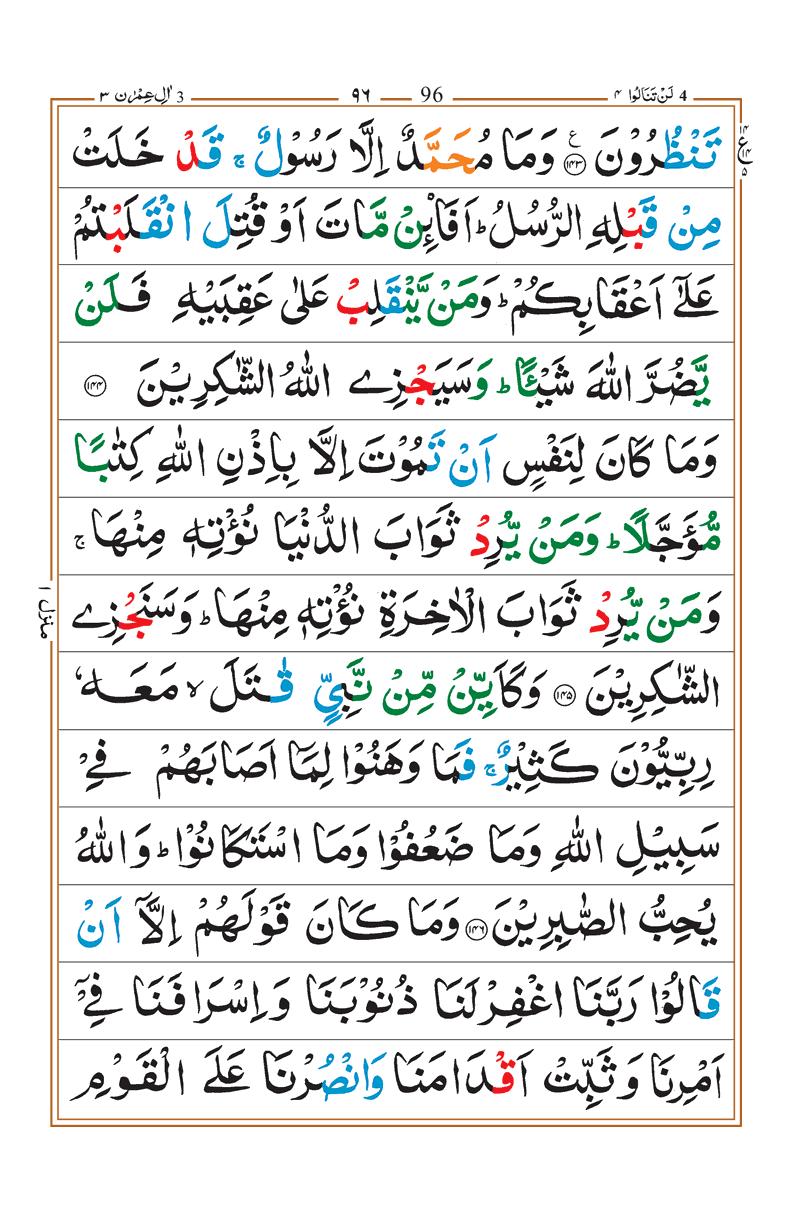 4 لَنْ تَنَالُوا ٤
96 ٩٦
3 اٰلِ عِمْرٰن ٣
تَنْظُرُوْنَ ﴿١٤٣﴾ ع وَمَا مُحَمَّدٌ اِلَّا رَسُوْلٌ ۚ قَدْ خَلَتْ
مِنْ قَبْلِهِ الرُّسُلُ ؕ اَفَا۟ئِنْ مَّاتَ اَوْ قُتِلَ انْقَلَبْتُمْ
عَلٰٓى اَعْقَابِكُمْ ؕ وَمَنْ يَّنْقَلِبْ عَلٰى عَقِبَيْهِ فَلَنْ
يَّضُرَّ اللّٰهَ شَيْـًٔا ؕ وَسَيَجْزِى اللّٰهُ الشّٰكِرِيْنَ ﴿١٤٤﴾
وَمَا كَانَ لِنَفْسٍ اَنْ تَمُوْتَ اِلَّا بِاِذْنِ اللّٰهِ كِتٰبًا
مُّؤَجَّلًا ؕ وَمَنْ يُّرِدْ ثَوَابَ الدُّنْيَا نُؤْتِهٖ مِنْهَا ۚ
وَمَنْ يُّرِدْ ثَوَابَ الْاٰخِرَةِ نُؤْتِهٖ مِنْهَا ؕ وَسَنَجْزِى
الشّٰكِرِيْنَ ﴿١٤٥﴾ وَكَاَيِّنْ مِّنْ نَّبِيٍّ قٰتَلَ ۙ مَعَهٗ
رِبِّيُّوْنَ كَثِيْرٌ ۚ فَمَا وَهَنُوْا لِمَاۤ اَصَابَهُمْ فِيْ
سَبِيْلِ اللّٰهِ وَمَا ضَعُفُوْا وَمَا اسْتَكَانُوْا ؕ وَاللّٰهُ
يُحِبُّ الصّٰبِرِيْنَ ﴿١٤٦﴾ وَمَا كَانَ قَوْلَهُمْ اِلَّاۤ اَنْ
قَالُوْا رَبَّنَا اغْفِرْ لَنَا ذُنُوْبَنَا وَاِسْرَافَنَا فِيْۤ
اَمْرِنَا وَثَبِّتْ اَقْدَامَنَا وَانْصُرْنَا عَلَى الْقَوْمِ
منزل ١